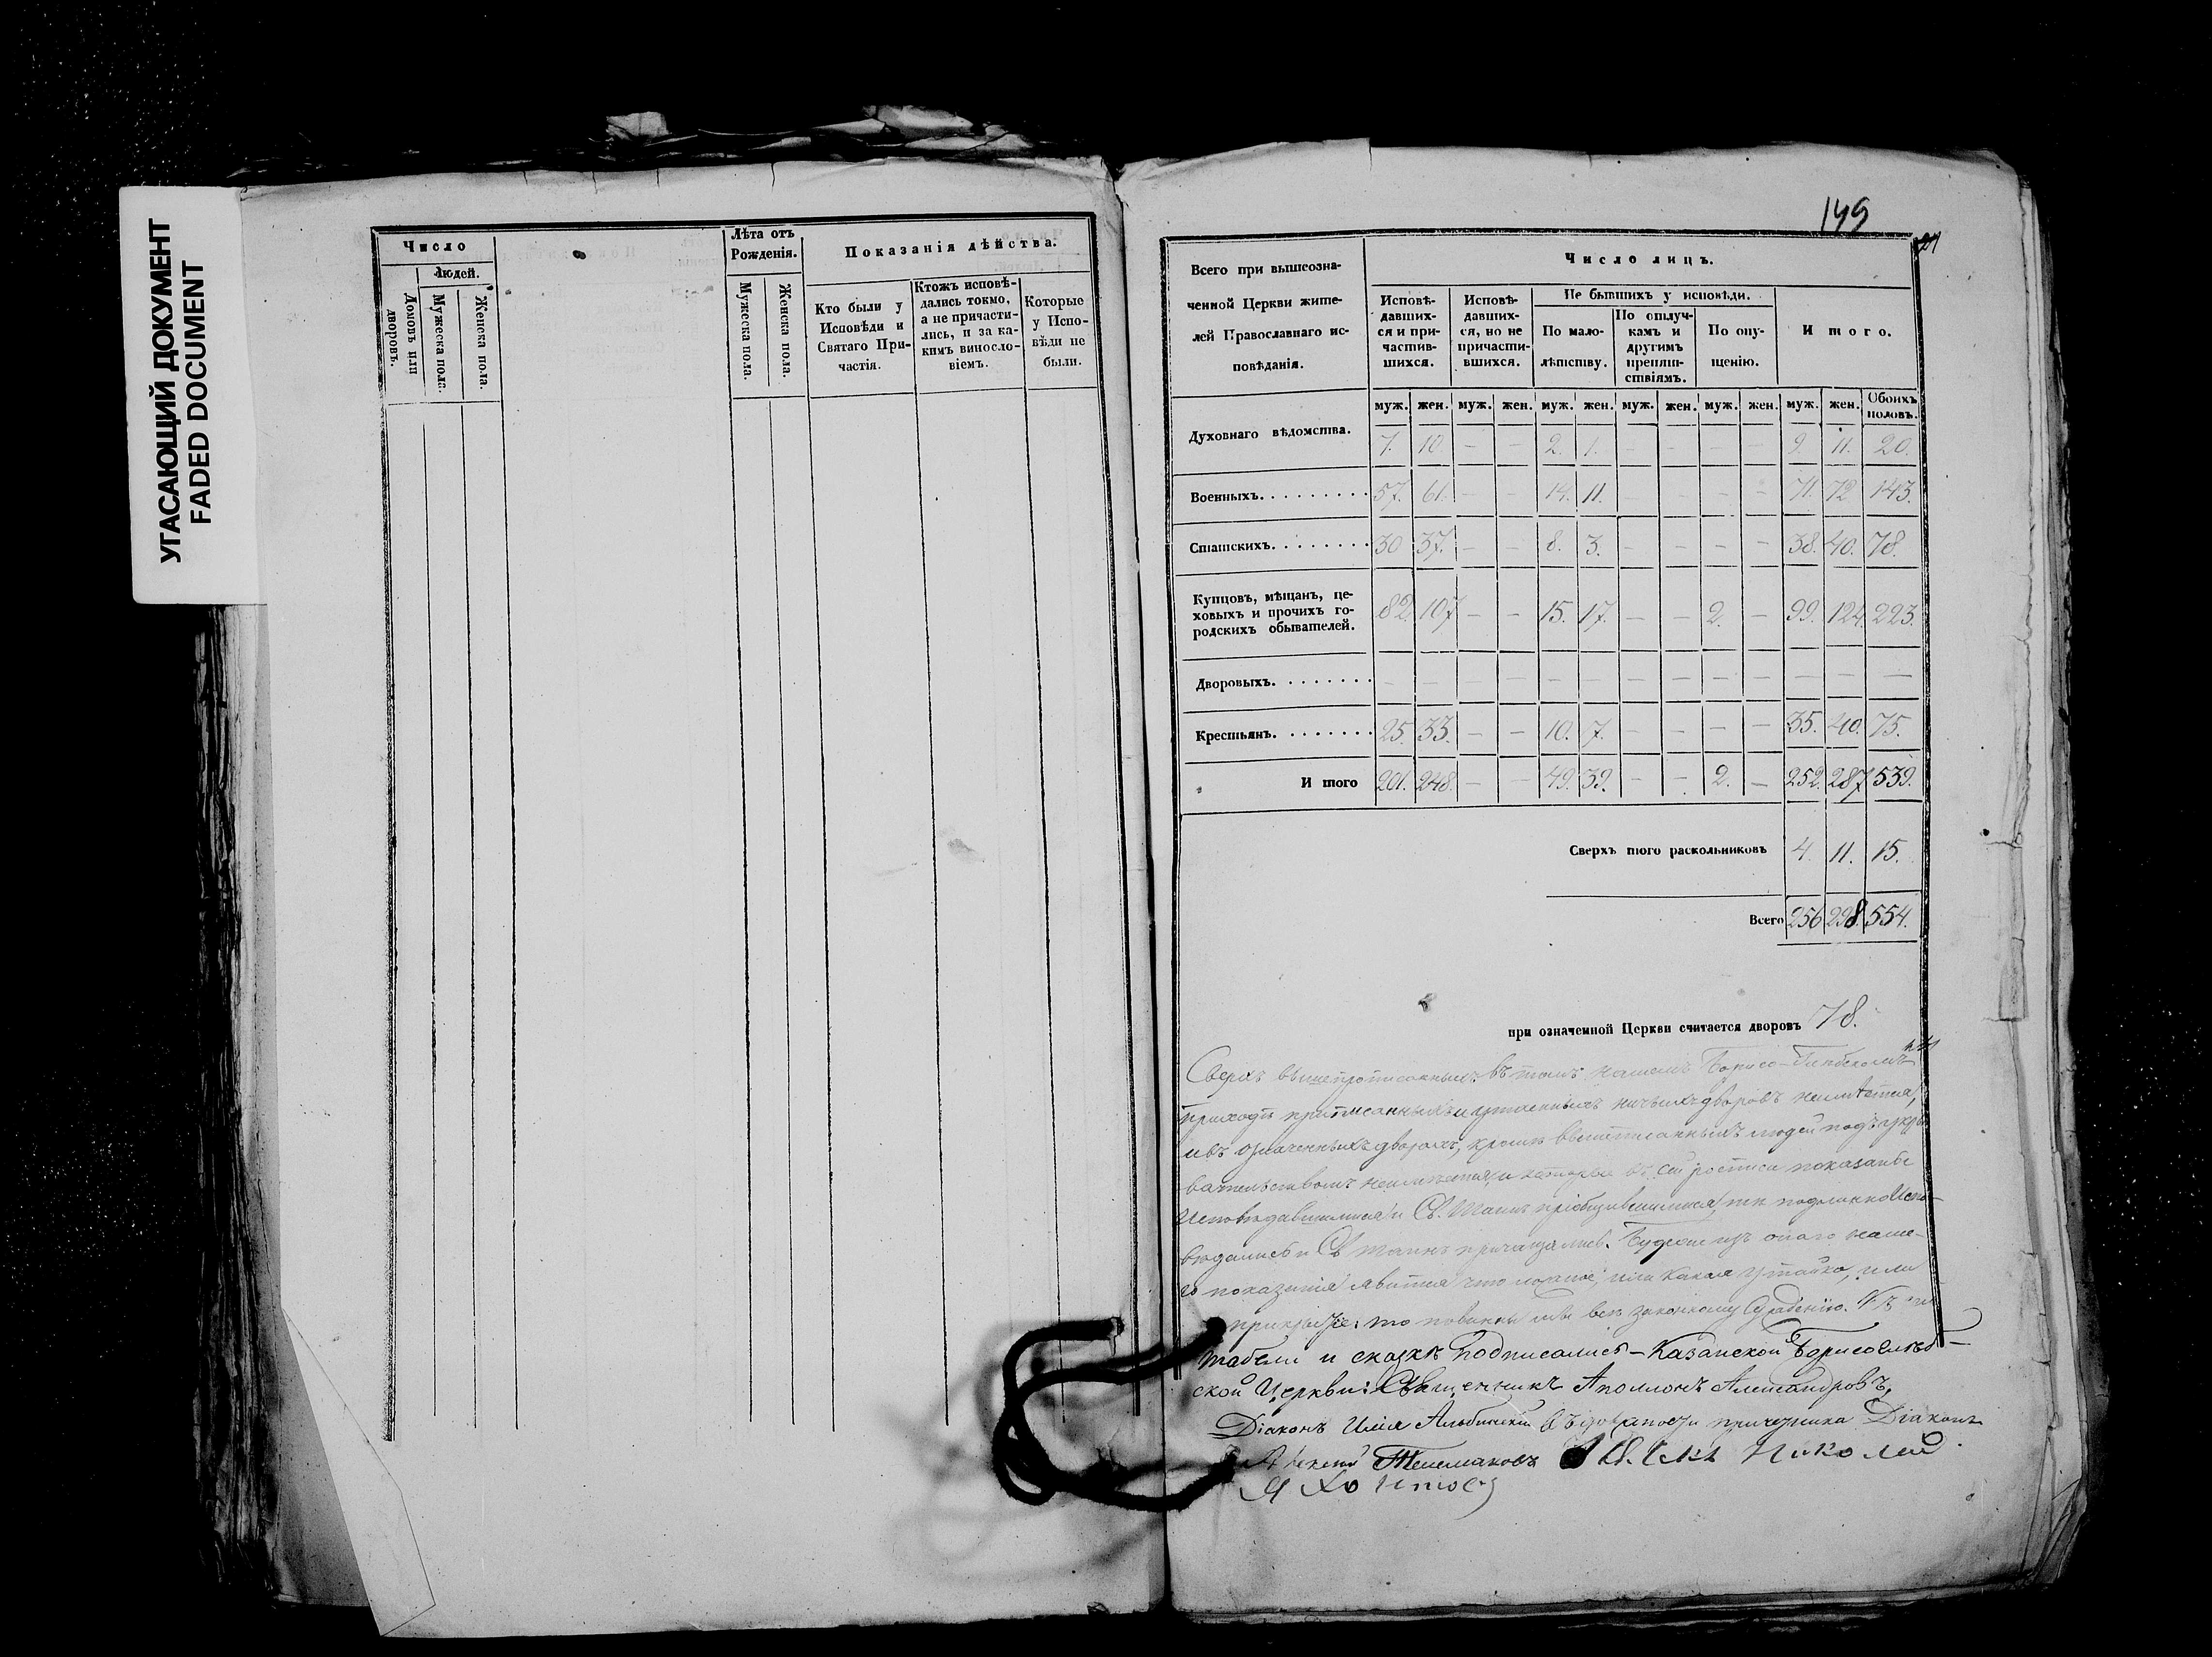 УГАСАЮЩИЙ ДОКУМЕНТ
FADED DOCUMENT
Число
Людей.
Домовъ или дворовъ.
Мужеска пола.
Женска пола.
Лѣта отъ
Рожденія.
Мужеска пола.
Женска пола.
Показанія дѣйства.
Кто были у
Исповѣди и
Святаго При-
частія.
Ктожъ исповѣ-
дались токмо,
а не причасти-
лись, и за ка-
кимъ винсло-
віемъ.
Которые
у Испо-
вѣди не
были.
149
Всего при вышеозна-
ченной Церкви жите-
лей Православнаго ис-
повѣданія.
Число лицъ.
Исповѣ-
давших-
ся и при-
частив-
шихся.
Исповѣ-
давших-
ся, но не
причасти-
вшихся.
Не бывшихъ у исповѣди.
По мало-
лѣтству.
По отлуч-
камъ и
другимъ
препят-
ствіямъ.
По опу-
щенію.
И того.
муж. жен. муж. жен. муж. жен. муж. жен. муж. жен. муж. жен. Обоихъ половъ.
Духовнаго вѣдомства. 7. 10. — — 2. 1. — — — — 9. 11. 20.
Военныхъ. 57. 61. — — 14. 11. — — — — 71. 72 143.
Статскихъ. 30 37. — — 8. 3. — — — — 38. 40. 78.
Купцовъ, мѣщанъ, це-
ховыхъ и прочихъ го-
родскихъ обывателей. 82. 107 — — 15. 17. — — 2. — 99. 124. 223.
Дворовыхъ. — — — — — — — — — — — — —
Крестьянъ. 25. 33. — — 10. 7. — — — — 35. 40. 75.
И того 201. 248. — — 49. 39. — — 2. — 252. 287 539.
Сверхъ того раскольниковъ 4. 11. 15.
Всего 256 298. 554.
при означенной Церкви считается дворовъ 78.
Сверхъ вышепрописанныхъ въ томъ нашемъ Борисо-Глѣбскомъ
приходѣ приписанныхъ и утаенныхъ ничьихъ дворовъ неимѣется,
и въ означенныхъ дворахъ, кромѣ вышеписанныхъ людей подъ укры
вательствомъ неимѣется, и которые въ сей росписи показаны
Исповѣдавшимися и Св. Таинъ пріобщившимися, тѣ подлинно Испо-
вѣдались и Св Таинъ причащались. Буде изъ онаго наше-
го показанія явится что ложное, или какая утайка, или
прикрытіе: то повинны мы всѣ законному сужденію. Къ сей
табели и сказкѣ подписались – Казанской Борисоглѣб-
ской Церкви: Священникъ Аполлонъ Александровъ,
Діаконъ Илія причетника Діаконъ
Алексей Николай